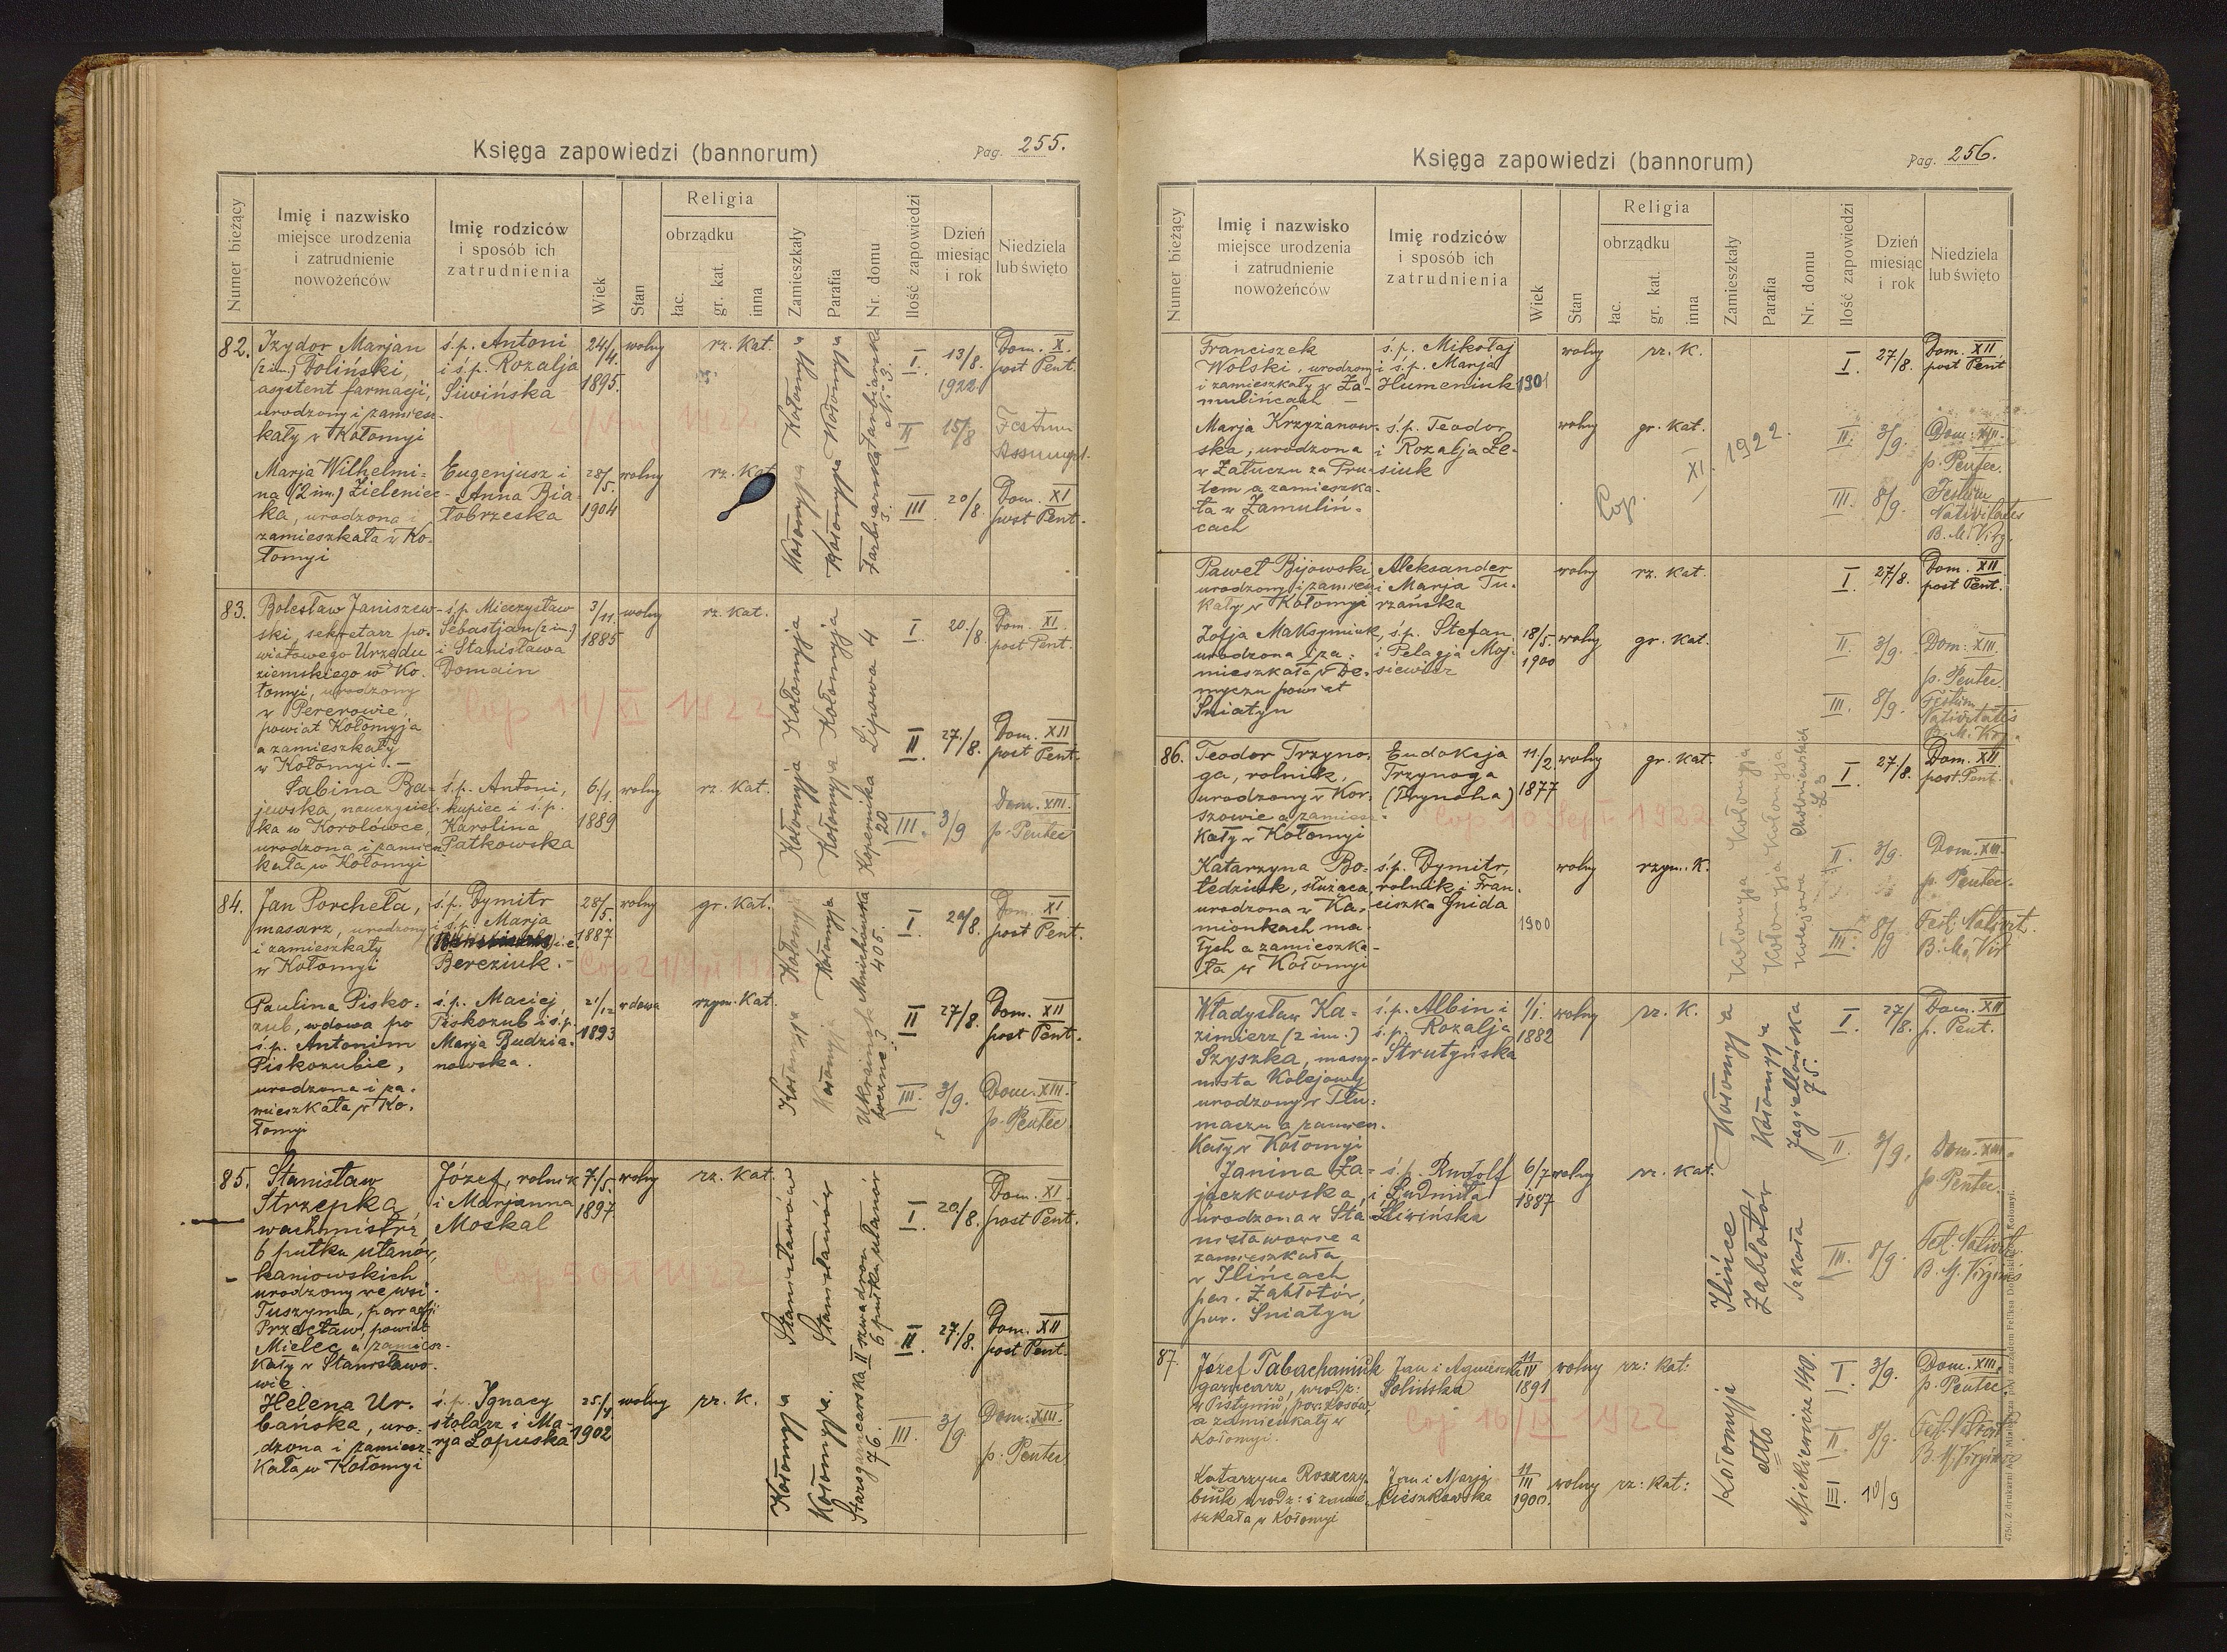 Księga zapowiedzi (bannorum)
Pag. 255.
Numer bieżący
Imię i nazwisko
miejsce urodzenia
i zatrudnienie
nowożeńców
Imię rodziców
i sposób ich
zatrudnienia
Wiek
Stan
Religia
obrządku
łac.
gr. kat.
inna
Zamieszkały
Parafia
Nr. domu
Ilość zapowiedzi
Dzień
miesiąc
i rok
Niedziela
lub święto
82.
Izydor Marjan
(2 im.) Doliński,
asystent farmacji,
urodzony i zamiesz-
kały w Kołomyi
ś.p. Antoni
i ś.p. Rozalja
Siwińska
24/4.
1895.
wolny
rz. Kat.
Kołomyja
Kołomyja
I.
13/8.
1922
Dom. X.
post Pent.
II
15/8
Festum
Assumpt.
Marja Wilhelmi-
na (2 im.) Zieleniec-
ka, urodzona i
zamieszkała w Ko-
łomyi
Eugenjusz i
Anna Bia-
łobrzeska
28/5.
1904
wolny
rz. Kat
Kołomyja
Kołomyja
III
20/8.
Dom. XI
post Pent.
83.
Bolesław Janiszew-
ski, sekretarz po-
wiatowego Urzędu
ziemskiego w Ko-
łomyi, urodzony
w Pererowie
powiat Kołomyja
a zamieszkały
w Kołomyi. —
ś.p. Mieczysław
Sebastjan (2 im.)
i Stanisława
Domain
3/11.
1885
wolny
rz. Kat.
Kołomyja
Kołomyja
Lipowa 4
I
20./8.
Dom. XI.
post Pent.
Cop 11/XI 1922
II
27./8.
Dom. XII
post Pent.
Sabina Ba-
jewska, nauczyciel-
ka w Korolówce,
urodzona i zamiesz
kała w Kołomyi
ś.p. Antoni,
kupiec i ś.p.
Karolina
Patkowska
6/1.
1889
wolny
rz. Kat.
Kołomyja
Kołomyja
Kopernika
20
III.
3/9
Dom. XIII.
p. Pentec
84.
Jan Porcheła,
masarz, urodzony
i zamieszkały
w Kołomyi
ś.p. Dymitr
i ś.p. Marja
i.e.
Bereziuk. —
28/5.
1887
wolny
gr. Kat.
Kołomyja
Kołomyja
Mnichowska
405.
I
20/8.
Dom. XI
post Pent.
Paulina Pisko-
zub, wdowa po
ś.p. Antonim
Piskozubie,
urodzona i za-
mieszkała w Ko-
łomyi
ś.p. Maciej
Piskozub i ś.p.
Marja Budzia-
nowska.
21/12
1893
wdowa
rzym. Kat.
Kołomyja
Kołomyja
II
27/8.
Dom. XII
post Pent.
III.
3/9.
Dom. XIII.
p. Pentec
85.
Stanisław
Strzepka,
wachmistrz
6 pułku ułanów,
kaniowskich
urodzony we wsi
Tuszyma, parafji
Przecław, powiat
Mielec a zamiesz-
kały w Stanisławo-
wie
Józef, rolnik
i Marjanna
Moskal
7./5.
1897
wolny
rz. Kat.
Stanisławów
Stanisławów
II szwadron
6 pułku ułanów
I.
20/8.
Dom. XI.
post Pent.
II.
27./8.
Dom. XII
post Pent.
Helena Ur-
bańska, uro-
dzona i zamiesz-
kała w Kołomyi
ś.p. Ignacy
stolarz i Ma-
rja Łopuska
25/4.
1902
wolny
rz. K.
Kołomyja
Kołomyja.
Starogancarska
76.
III.
3/9
Dom. XIII.
p. Pentec
Księga zapowiedzi (bannorum)
Pag. 256.
Numer bieżący
Imię i nazwisko
miejsce urodzenia
i zatrudnienie
nowożeńców
Imię rodziców
i sposób ich
zatrudnienia
Wiek
Stan
Religia
obrządku
łac.
gr. kat.
inna
Zamieszkały
Parafia
Nr. domu
Ilość zapowiedzi
Dzień
miesiąc
i rok
Niedziela
lub święto
Franciszek
Wolski, urodzony
i zamieszkały w Za-
mulińcach —
ś.p. Mikołaj
i ś.p. Marja
Humeniuk
1901
wolny
rz. K.
I.
27/8.
Dom. XII
post Pent
Marja Krzyżanow-
ska, urodzona
w Załuczu za Pru-
tem a zamieszka-
ła w Zamuliń-
cach
ś.p. Teodor
i Rozalja Łe-
siuk
wolny
gr. Kat.
Cop. XI. 1922.
II.
3/9.
Dom. XIII.
p. Pentec.
III.
8/9.
Festum
Nativitatis
B. M. Virg.
Paweł Bijowski
urodzony i zamiesz
kały w Kołomyi
Aleksander
i Marja Tu-
rzańska
wolny
rz. Kat.
I.
27/8.
Dom. XII
post Pent.
Zofja Maksymiuk,
urodzona i za-
mieszkała w De-
myczu powiat
Śniatyn
ś.p. Stefan
i Pelagja Moj-
siewicz
18/5.
1900
wolny
gr. Kat.
II.
3/9.
Dom. XIII.
p. Pentec.
III.
8/9.
Festum
Nativitatis
B. M. Virg.
86.
Teodor Trzyno-
ga, rolnik,
urodzony w Kor-
szowie a zamiesz-
kały w Kołomyi
Eudokija
Trzynoga
(Trynoha)
11./2
1877
wolny
gr. Kat.
Kołomyja
Kołomyja
Chołoniewskich
I
27/8.
Dom. XII
post Pent.
Cop 10 Sept 1922
Katarzyna Bo-
łedziuk, służąca,
urodzona w Ka-
mionkach ma-
łych a zamieszka-
ła w Kołomyi
ś.p. Dymitr,
rolnik i Fran-
ciszka Gnida
1900
wolny
rzym. K.
Kołomyja
Kołomyja
Kolejowa
II
3/9.
Dom. XIII.
p. Pentec.
III.
8/9
Fest. Nativit.
B. M. Vir
Władysław Ka-
zimierz (2 im.)
Szyszka, maszy-
nista Kolejowy
urodzony w Tłu-
maczu a zamiesz-
kały w Kołomyi
ś.p. Albin i
ś.p. Rozalja
Strutyńska
1/1.
1882
wolny
rz. K.
Kołomyja
Kołomyja
Jagiellońska
75.
I
27/8.
Dom. XII
p. Pent.
II.
3/9.
Dom. XIII.
p. Pentec.
Janina Za-
jączkowska,
urodzona w Sta-
nisławowie a
zamieszkała
w Ilińcach
par. Zabłotów,
pow. Śniatyn
ś.p. Rudolf
i Ludmiła
Śliwińska
6/7
1887
wolny
rz. Kat.
Ilińce
Zabłotów
szkoła
III.
8/9.
Fest. Nativit.
B. M. Virginis
87.
Józef Tabachaniuk
garncarz, urodz:
w Pistyniu, pow. Kosów,
a zamieszkały w
Kołomyi.
Jan i Agnieszka
Solińska
11/III
1891
wolny
rz: kat:
Kołomyja
Mickiewicza 140.
I.
3/9.
Dom. XIII.
p. Pentec.
Cop 16/IX 1922
II
8/9.
Fest. Nativit.
B. M. Virginis
Katarzyna Rozczy-
biuk urodz: i zamie-
szkała w Kołomyi
Jan i Marja
Cieszkowska
11/III
1900.
wolny
rz: kat:
dtto
III
10/9